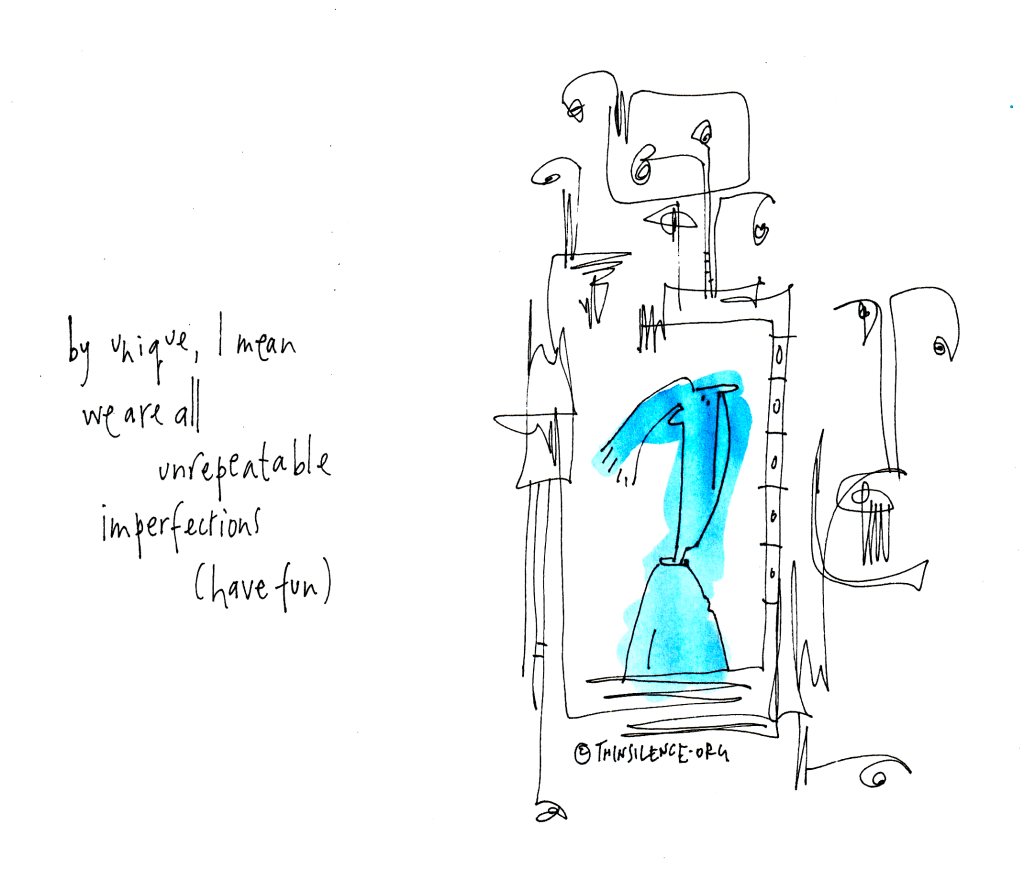 by unique, I mean
we are all
unrepeatable
imperfections
(have fun)
© THINSILENCE.ORG